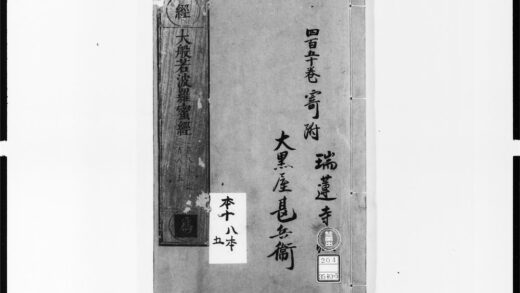 四百五十巻
寄附
瑞蓮寺
大黒屋甚兵衛
經
大般若波羅蜜經
本十八本
五
204